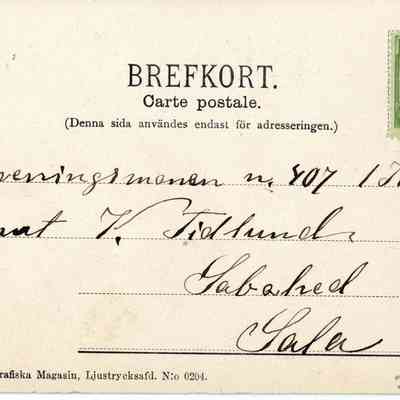 BREFKORT.
Carte postale.
(Denna sida användes endast för adresseringen.)
veningsmanen n. 407 / I
at V. Tidlund
Sabahed
Sala
rafiska Magasin, Ljustrycksafd. N:o 0204.